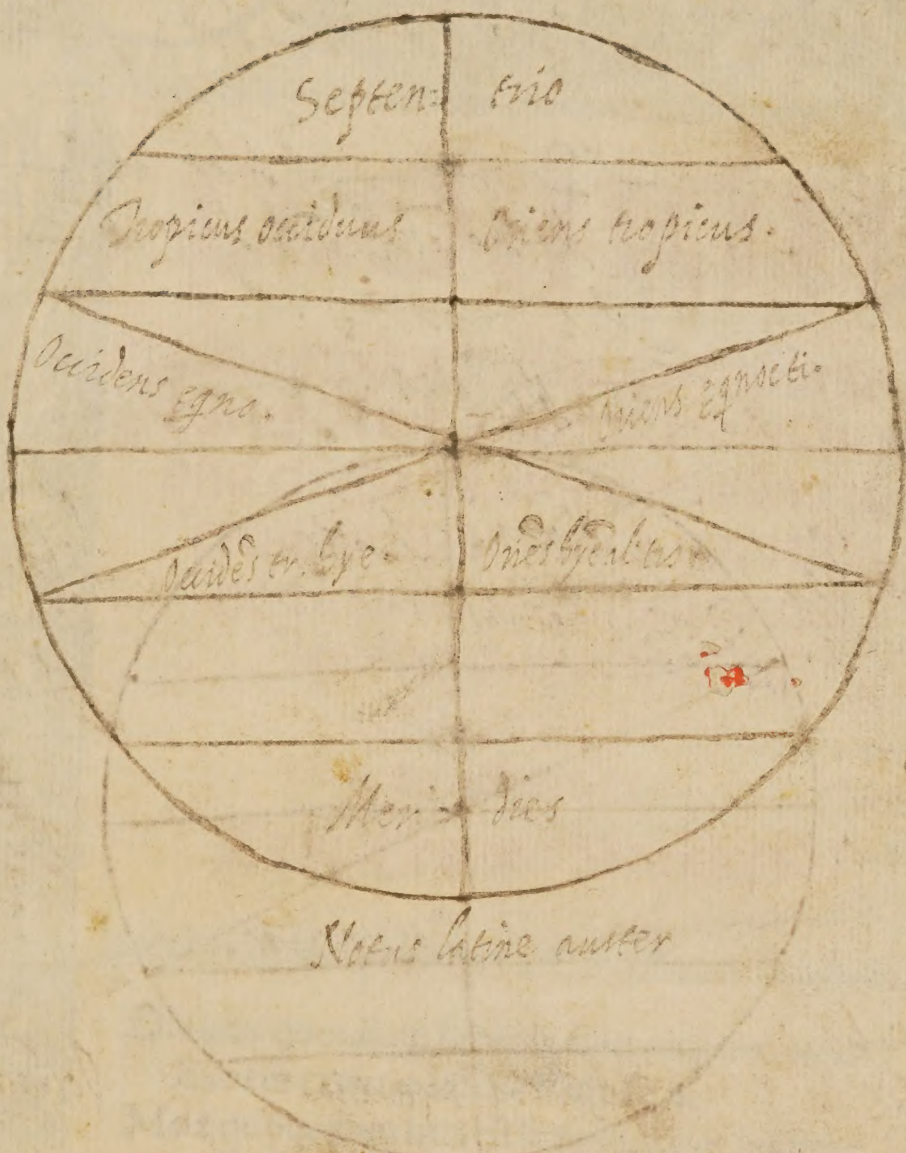 Septen= trio
Tropicus occiduus Oriens tropicus.
Occidens eqno. oriens eqnocti.
Occidēs tr. hye. Oriēs hyēal tro
Meri dies
Notus latine auster